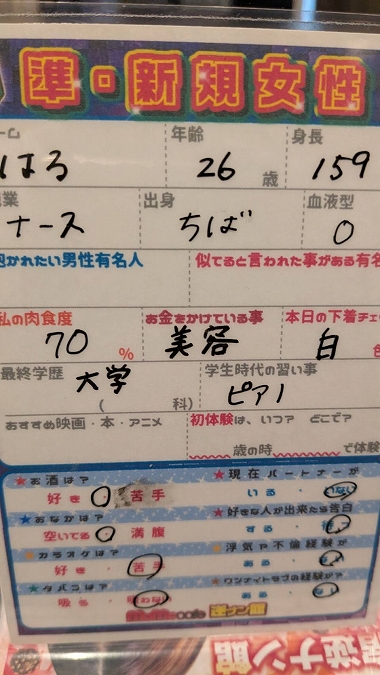 準・新規女性
ーム 年齢 身長
はる 26 歳 159
職業 出身 血液型
ナース ちば O
抱かれたい男性有名人 似てると言われた事がある有名
私の肉食度 お金をかけている事 本日の下着チェ
70 % 美容 白 色
最終学歴 大学 学生時代の習い事
( 科) ピアノ
おすすめ映画・本・アニメ 初体験は、いつ? どこで?
歳の時 で体験
★お酒は? ★現在パートナーが
好き 苦手 いる ・ いない
★おなかは? ★好きな人が出来たら告白
空いてる 満腹 する ・
★カラオケは? ★浮気や不倫経験が
好き ・ 苦手 ある ・
★タバコは? ★ワンナイトラブの経験が?
吸う ・ 吸わない ある ・
逆ナン館
逆ナン館